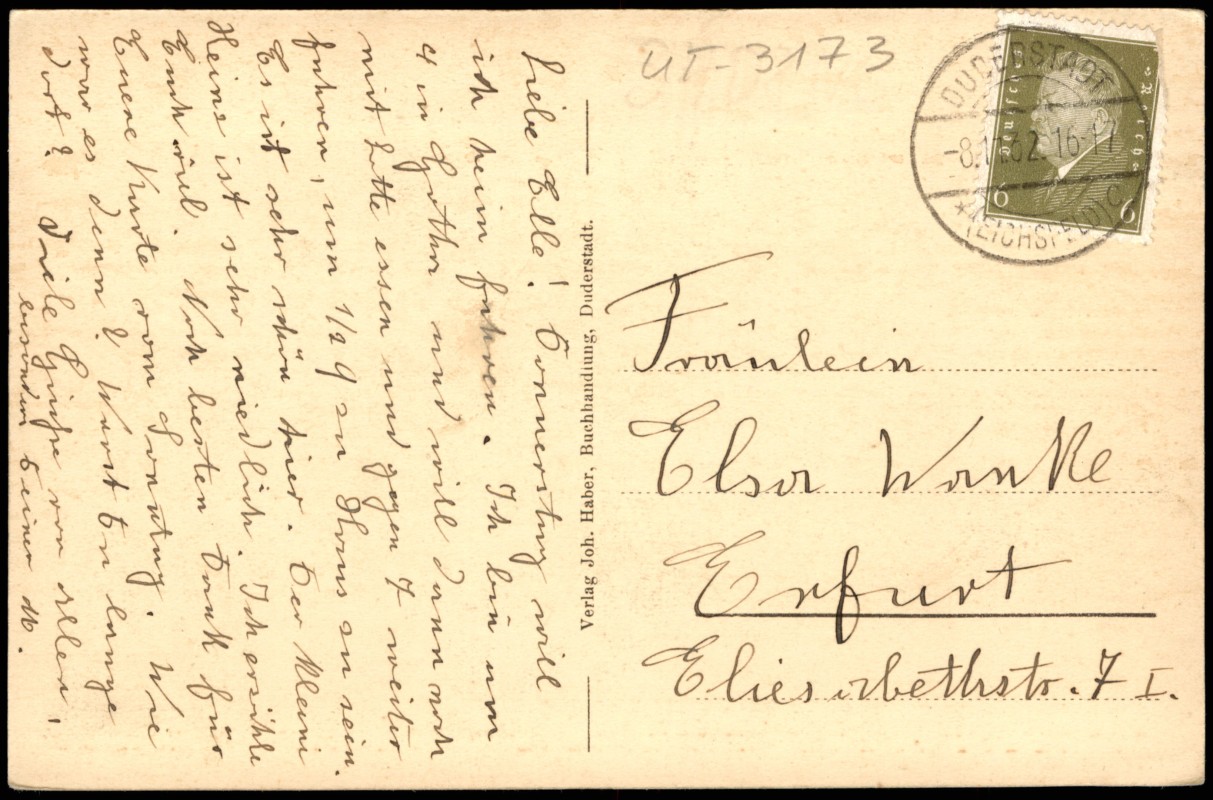 Liebe Elle! Donnerstag will
ich heim fahren. Ich bin um
4 in Gotha und will dann noch
mit Lotte essen und gegen 7 weiter
fahren, um 1/2 9 zu Haus zu sein.
Es ist sehr schön hier. Der kleine
Heine ist sehr niedlich. Ich erzähle
Euch viel. Noch besten Dank für
Euere Karte vom Sonntag. Wie
war es denn? Warst Du lange
dort? Viele Grüße von allen,
Deiner M.
Verlag Joh. Haber, Buchhandlung, Duderstadt.
UT-3173
DUDERSTADT
-8.11.32.16-17
* (EICHSFELD) C
Deutsches Reich
6 6
Fräulein
Elsa Wanke
Erfurt
Eliesabethstr. 7 I.